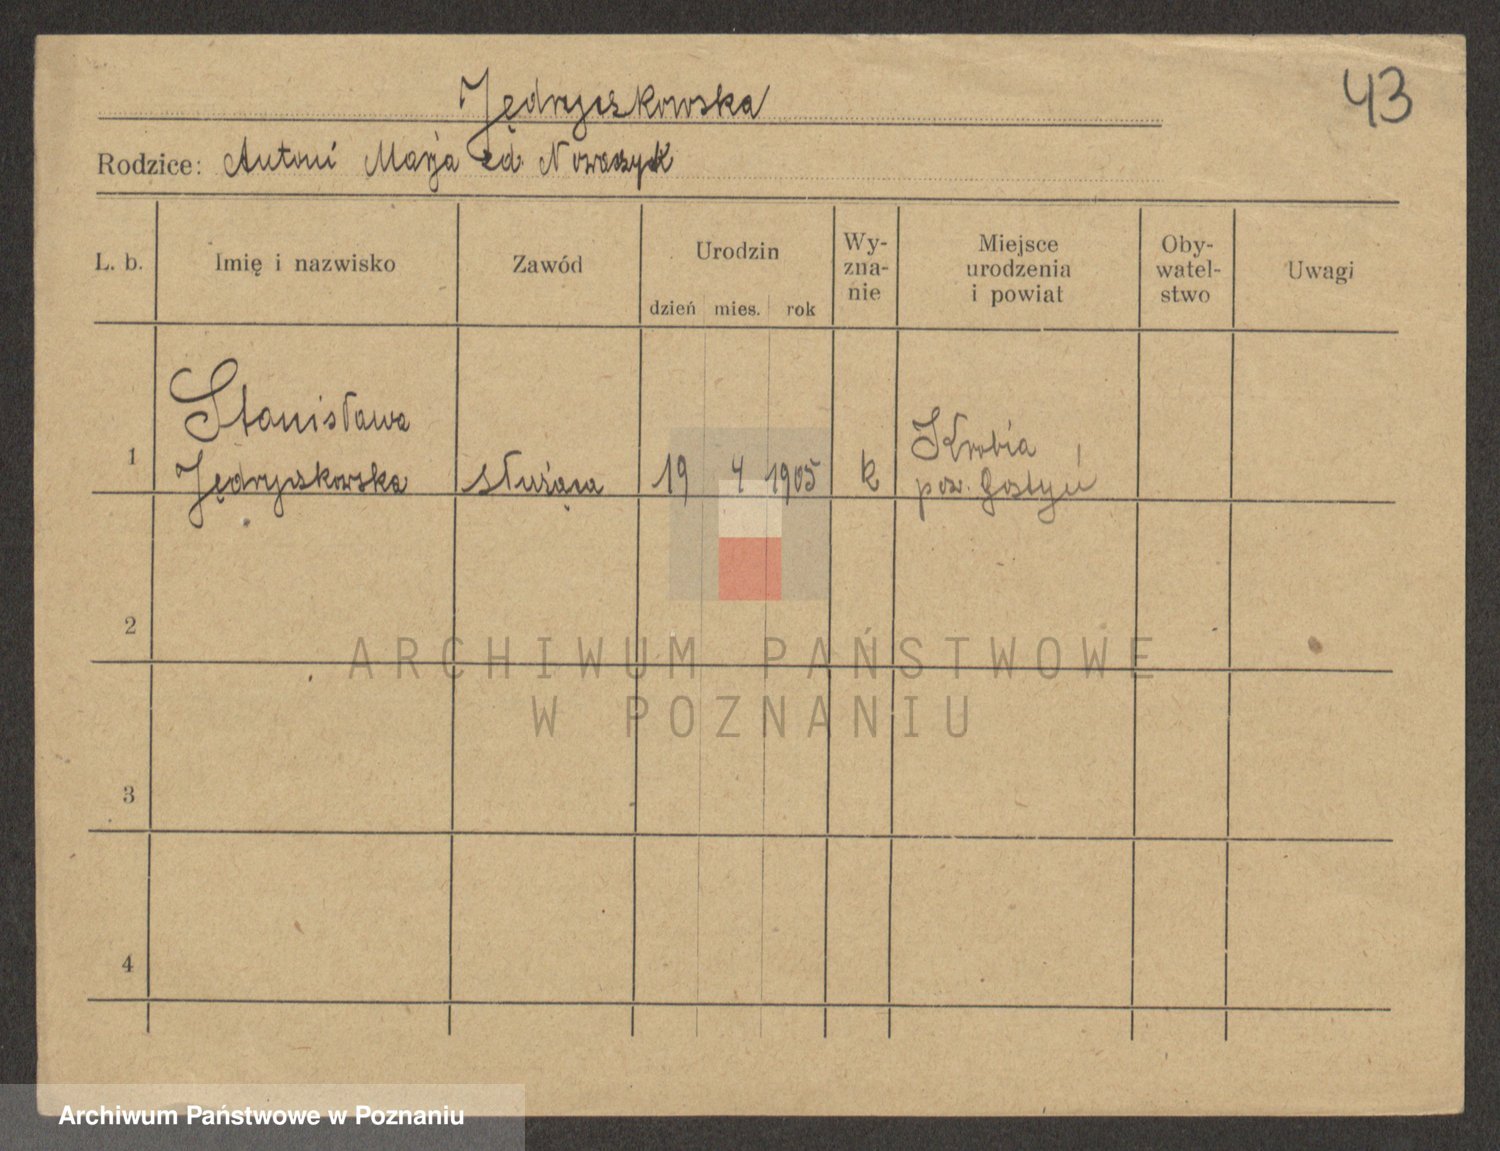 43
Jędryszkowska
Rodzice: Antoni Marja zd. Nowaczyk
L. b.
Imię i nazwisko
Zawód
Urodzin
dzień mies. rok
Wy-
zna-
nie
Miejsce
urodzenia
i powiat
Oby-
watel-
stwo
Uwagi
1
Stanisława
Jędryszkowska
służąca
19 4 1905
k
Krobia
pow. Gostyń
2
3
4
ARCHIWUM PAŃSTWOWE
W POZNANIU
Archiwum Państwowe w Poznaniu